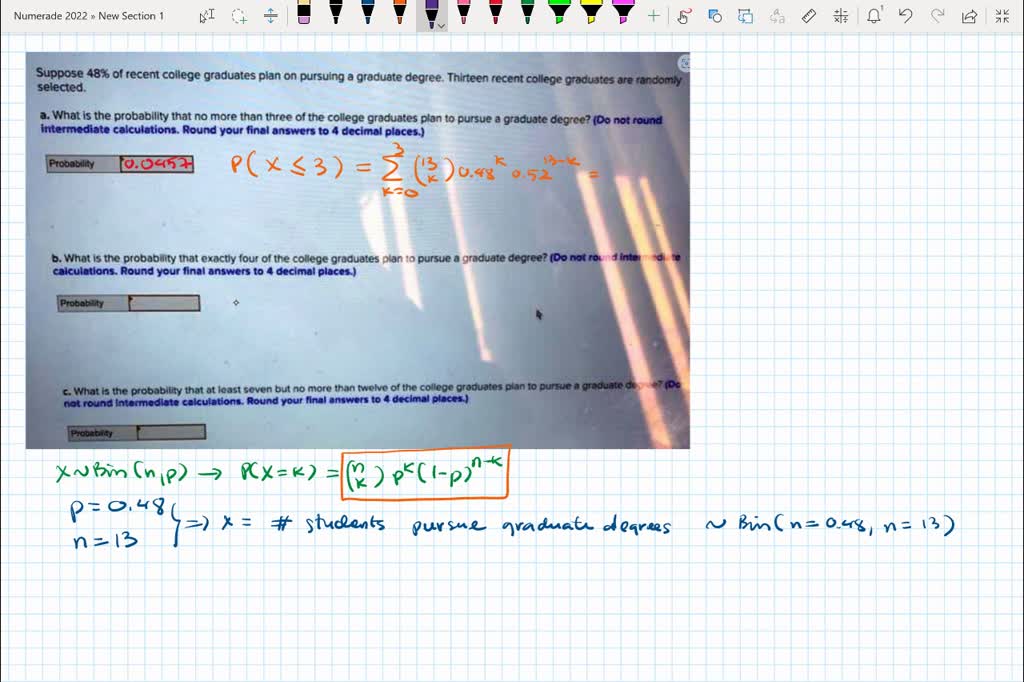 Numerade 2022 » New Section 1
Suppose 48% of recent college graduates plan on pursuing a graduate degree. Thirteen recent college graduates are randomly
selected.
a. What is the probability that no more than three of the college graduates plan to pursue a graduate degree? (Do not round
intermediate calculations. Round your final answers to 4 decimal places.)
Probability 0.0457 P(X ≤ 3) = ∑_{k=0}^{3} (13 k) 0.48^k 0.52^{13-k} =
b. What is the probability that exactly four of the college graduates plan to pursue a graduate degree? (Do not round intermediate
calculations. Round your final answers to 4 decimal places.)
Probability
c. What is the probability that at least seven but no more than twelve of the college graduates plan to pursue a graduate degree? (Do
not round intermediate calculations. Round your final answers to 4 decimal places.)
Probability
X ~ Bin(n,p) → P(X=k) = (n k) p^k (1-p)^{n-k}
p = 0.48
n = 13
} => x = # students pursue graduate degrees ~ Bin(n = 0.48, n = 13)